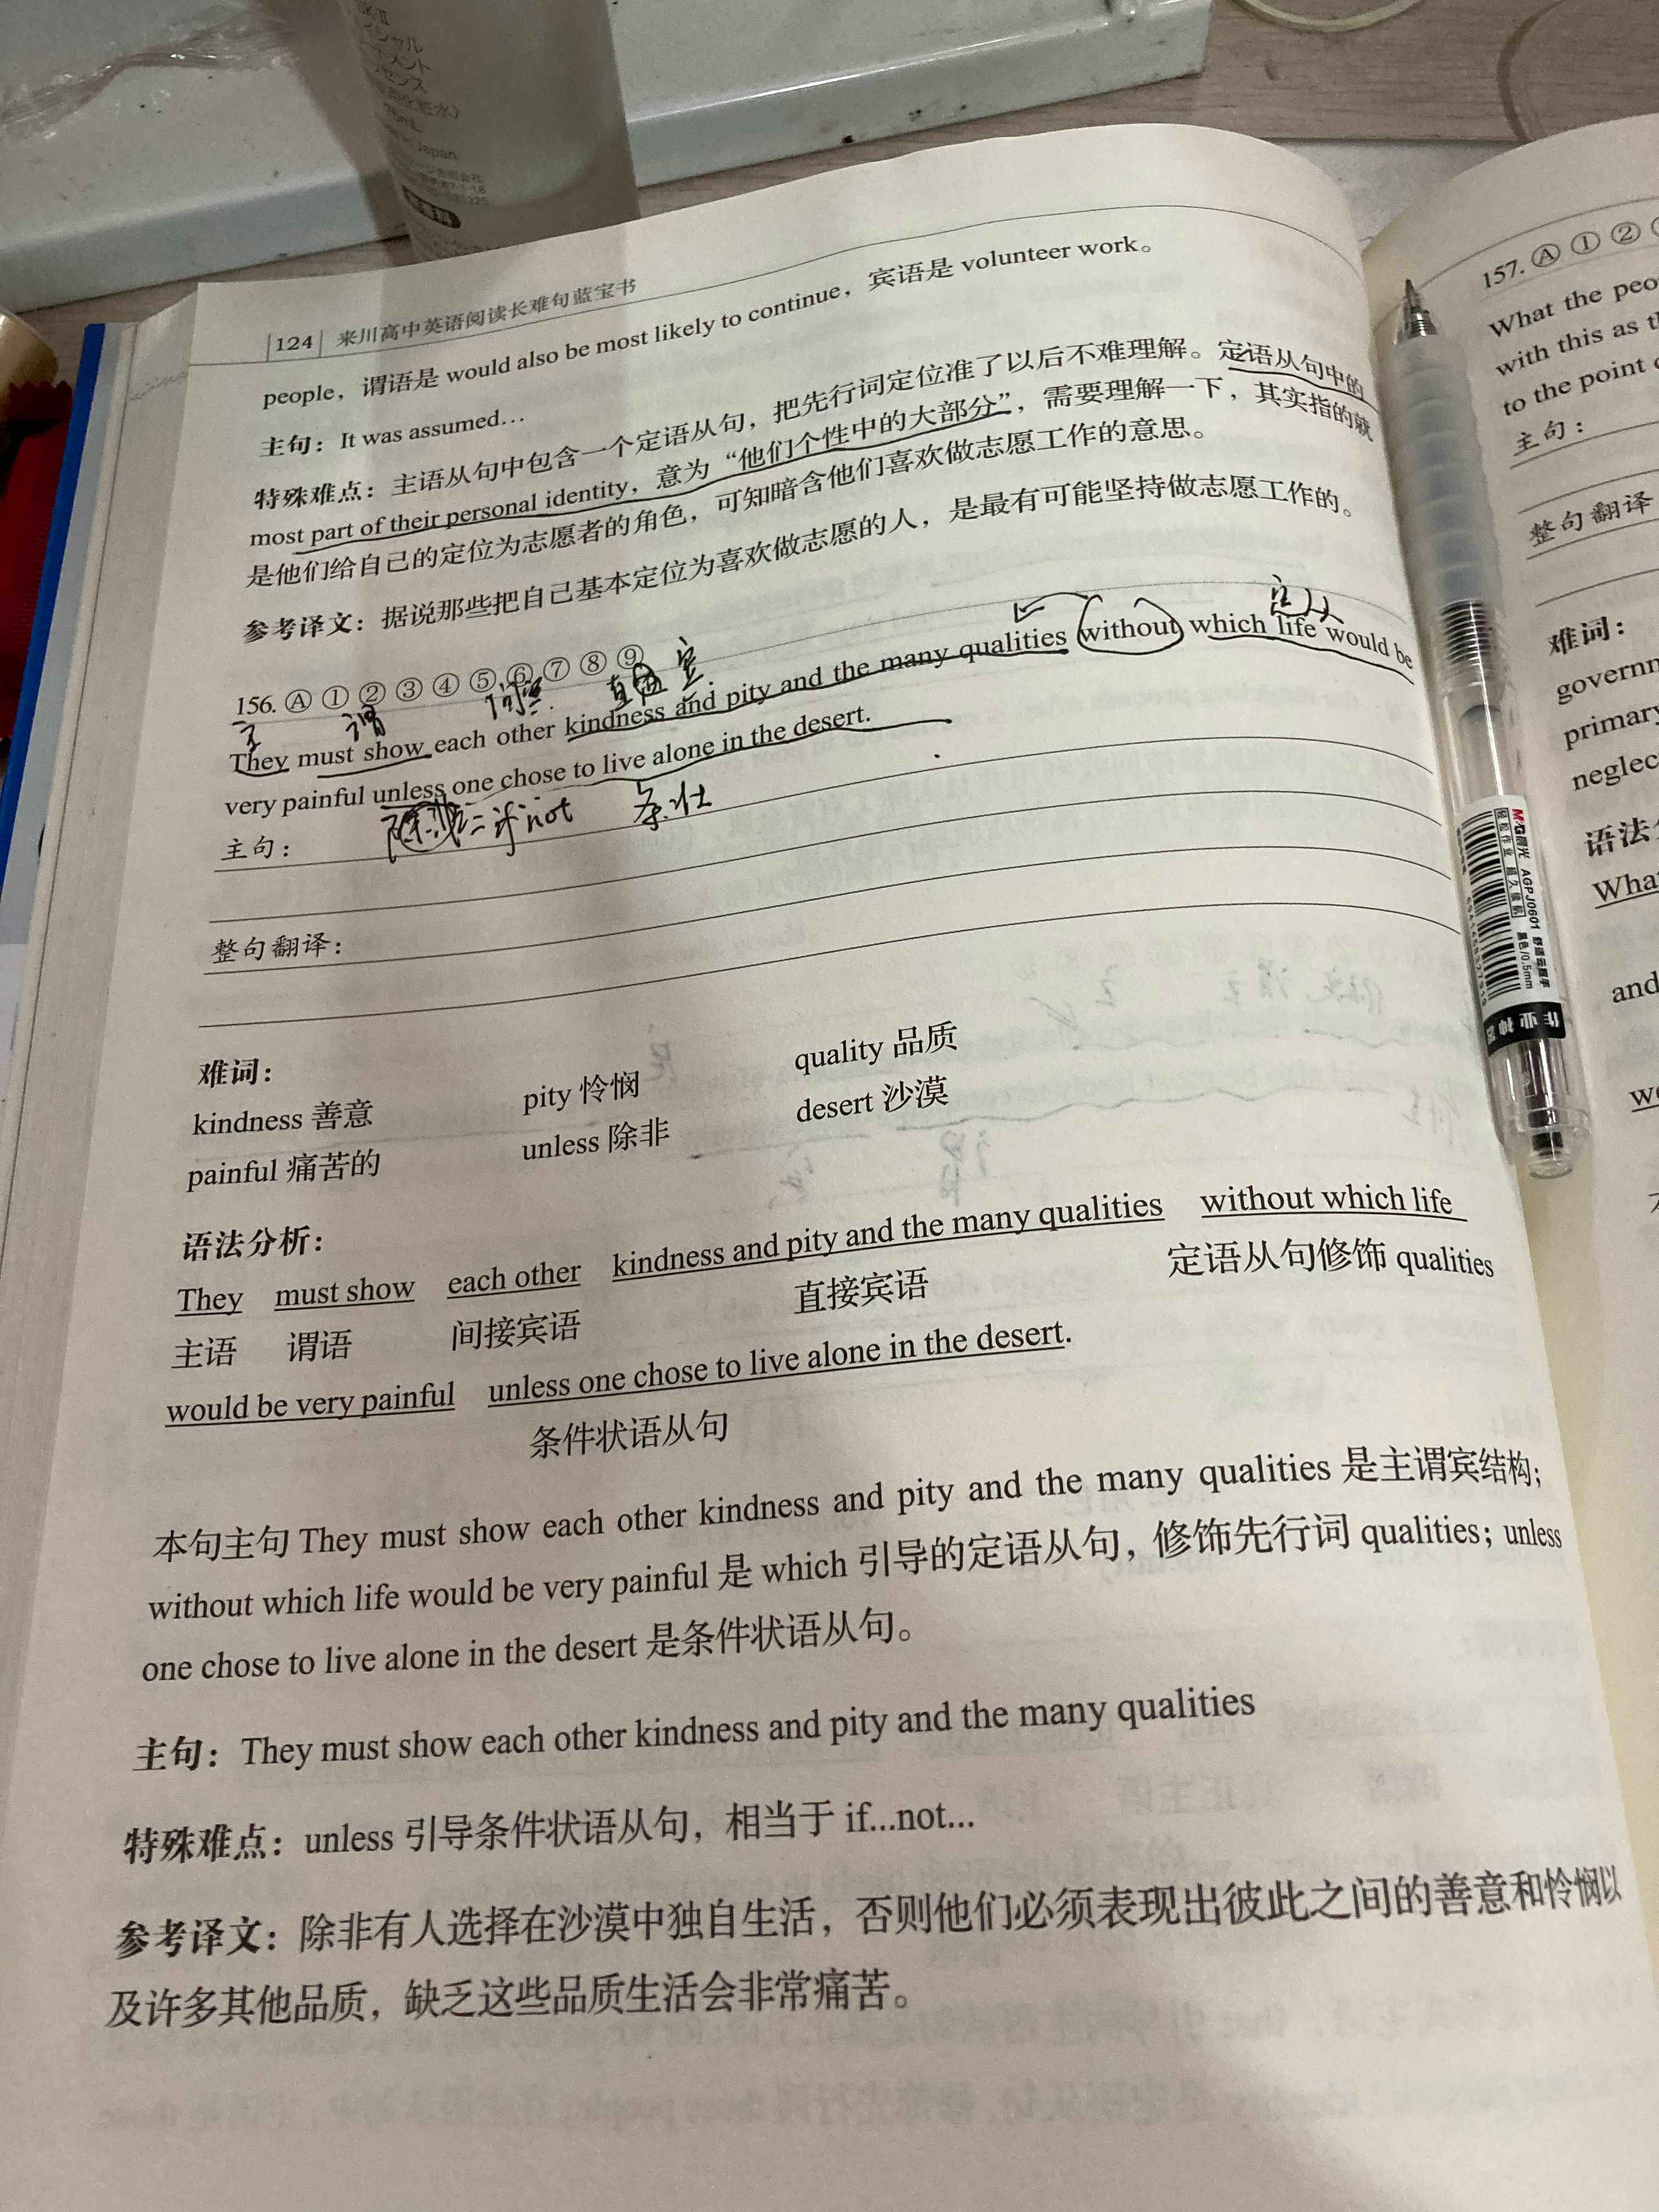 イシャル
トメント
ッセンス
化粧水〉
Japan
|124| 来川高中英语阅读长难句蓝宝书
people，谓语是 would also be most likely to continue，宾语是 volunteer work。
主句：It was assumed…
特殊难点：主语从句中包含一个定语从句，把先行词定位准了以后不难理解。定语从句中的
most part of their personal identity，意为“他们个性中的大部分”，需要理解一下，其实指的就
是他们给自己的定位为志愿者的角色，可知暗含他们喜欢做志愿工作的意思。
参考译文：据说那些把自己基本定位为喜欢做志愿的人，是最有可能坚持做志愿工作的。
定从
156. Ⓐ ① ② ③ ④ ⑤ ⑥ ⑦ ⑧ ⑨
主 谓 间宾. 直 宾
They must show each other kindness and pity and the many qualities without which life would be
very painful unless one chose to live alone in the desert.
=if not 条.状
主句：
整句翻译：
难词：
kindness 善意 pity 怜悯 quality 品质
painful 痛苦的 unless 除非 desert 沙漠
语法分析：
They must show each other kindness and pity and the many qualities without which life
主语 谓语 间接宾语 直接宾语 定语从句修饰 qualities
would be very painful unless one chose to live alone in the desert.
条件状语从句
本句主句 They must show each other kindness and pity and the many qualities 是主谓宾结构；
without which life would be very painful 是 which 引导的定语从句，修饰先行词 qualities；unless
one chose to live alone in the desert 是条件状语从句。
主句：They must show each other kindness and pity and the many qualities
特殊难点：unless 引导条件状语从句，相当于 if...not...
参考译文：除非有人选择在沙漠中独自生活，否则他们必须表现出彼此之间的善意和怜悯以
及许多其他品质，缺乏这些品质生活会非常痛苦。
157. Ⓐ ① ②
What the peo
with this as t
to the point
主句：
整句翻译
难词：
governm
primary
neglec
语法分
What
and
M&G晨光 AGPJ0601 黑色/0.5mm